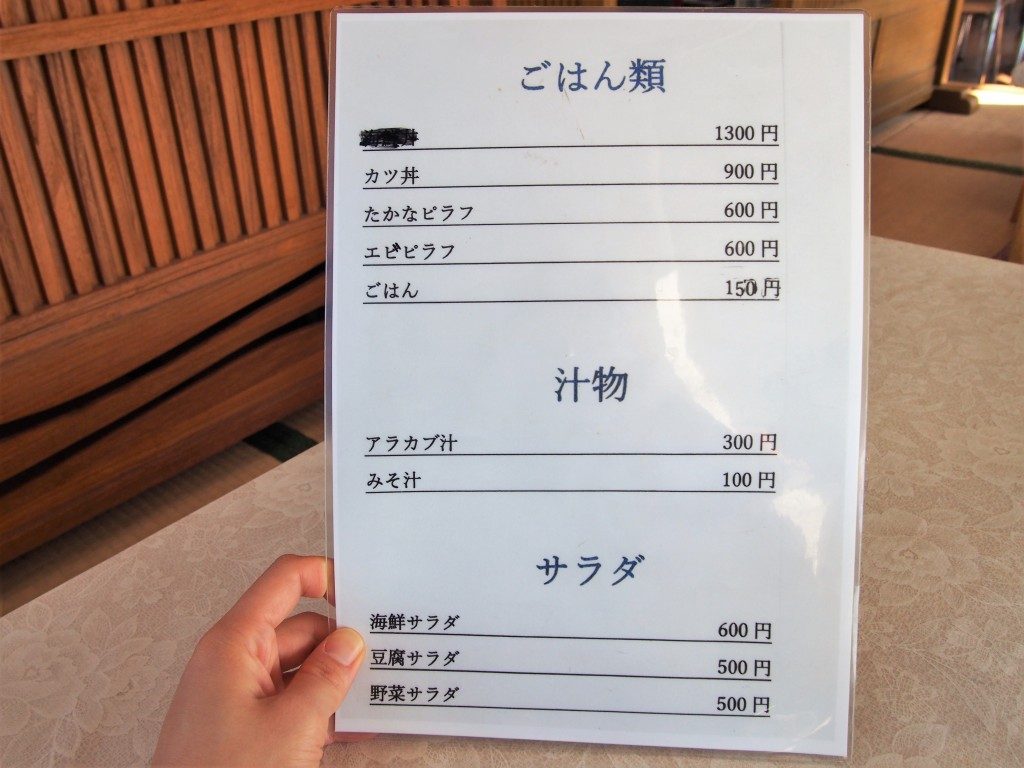 ごはん類
1300 円
カツ丼 900 円
たかなピラフ 600 円
エビピラフ 600 円
ごはん 150 円
汁物
アラカブ汁 300 円
みそ汁 100 円
サラダ
海鮮サラダ 600 円
豆腐サラダ 500 円
野菜サラダ 500 円